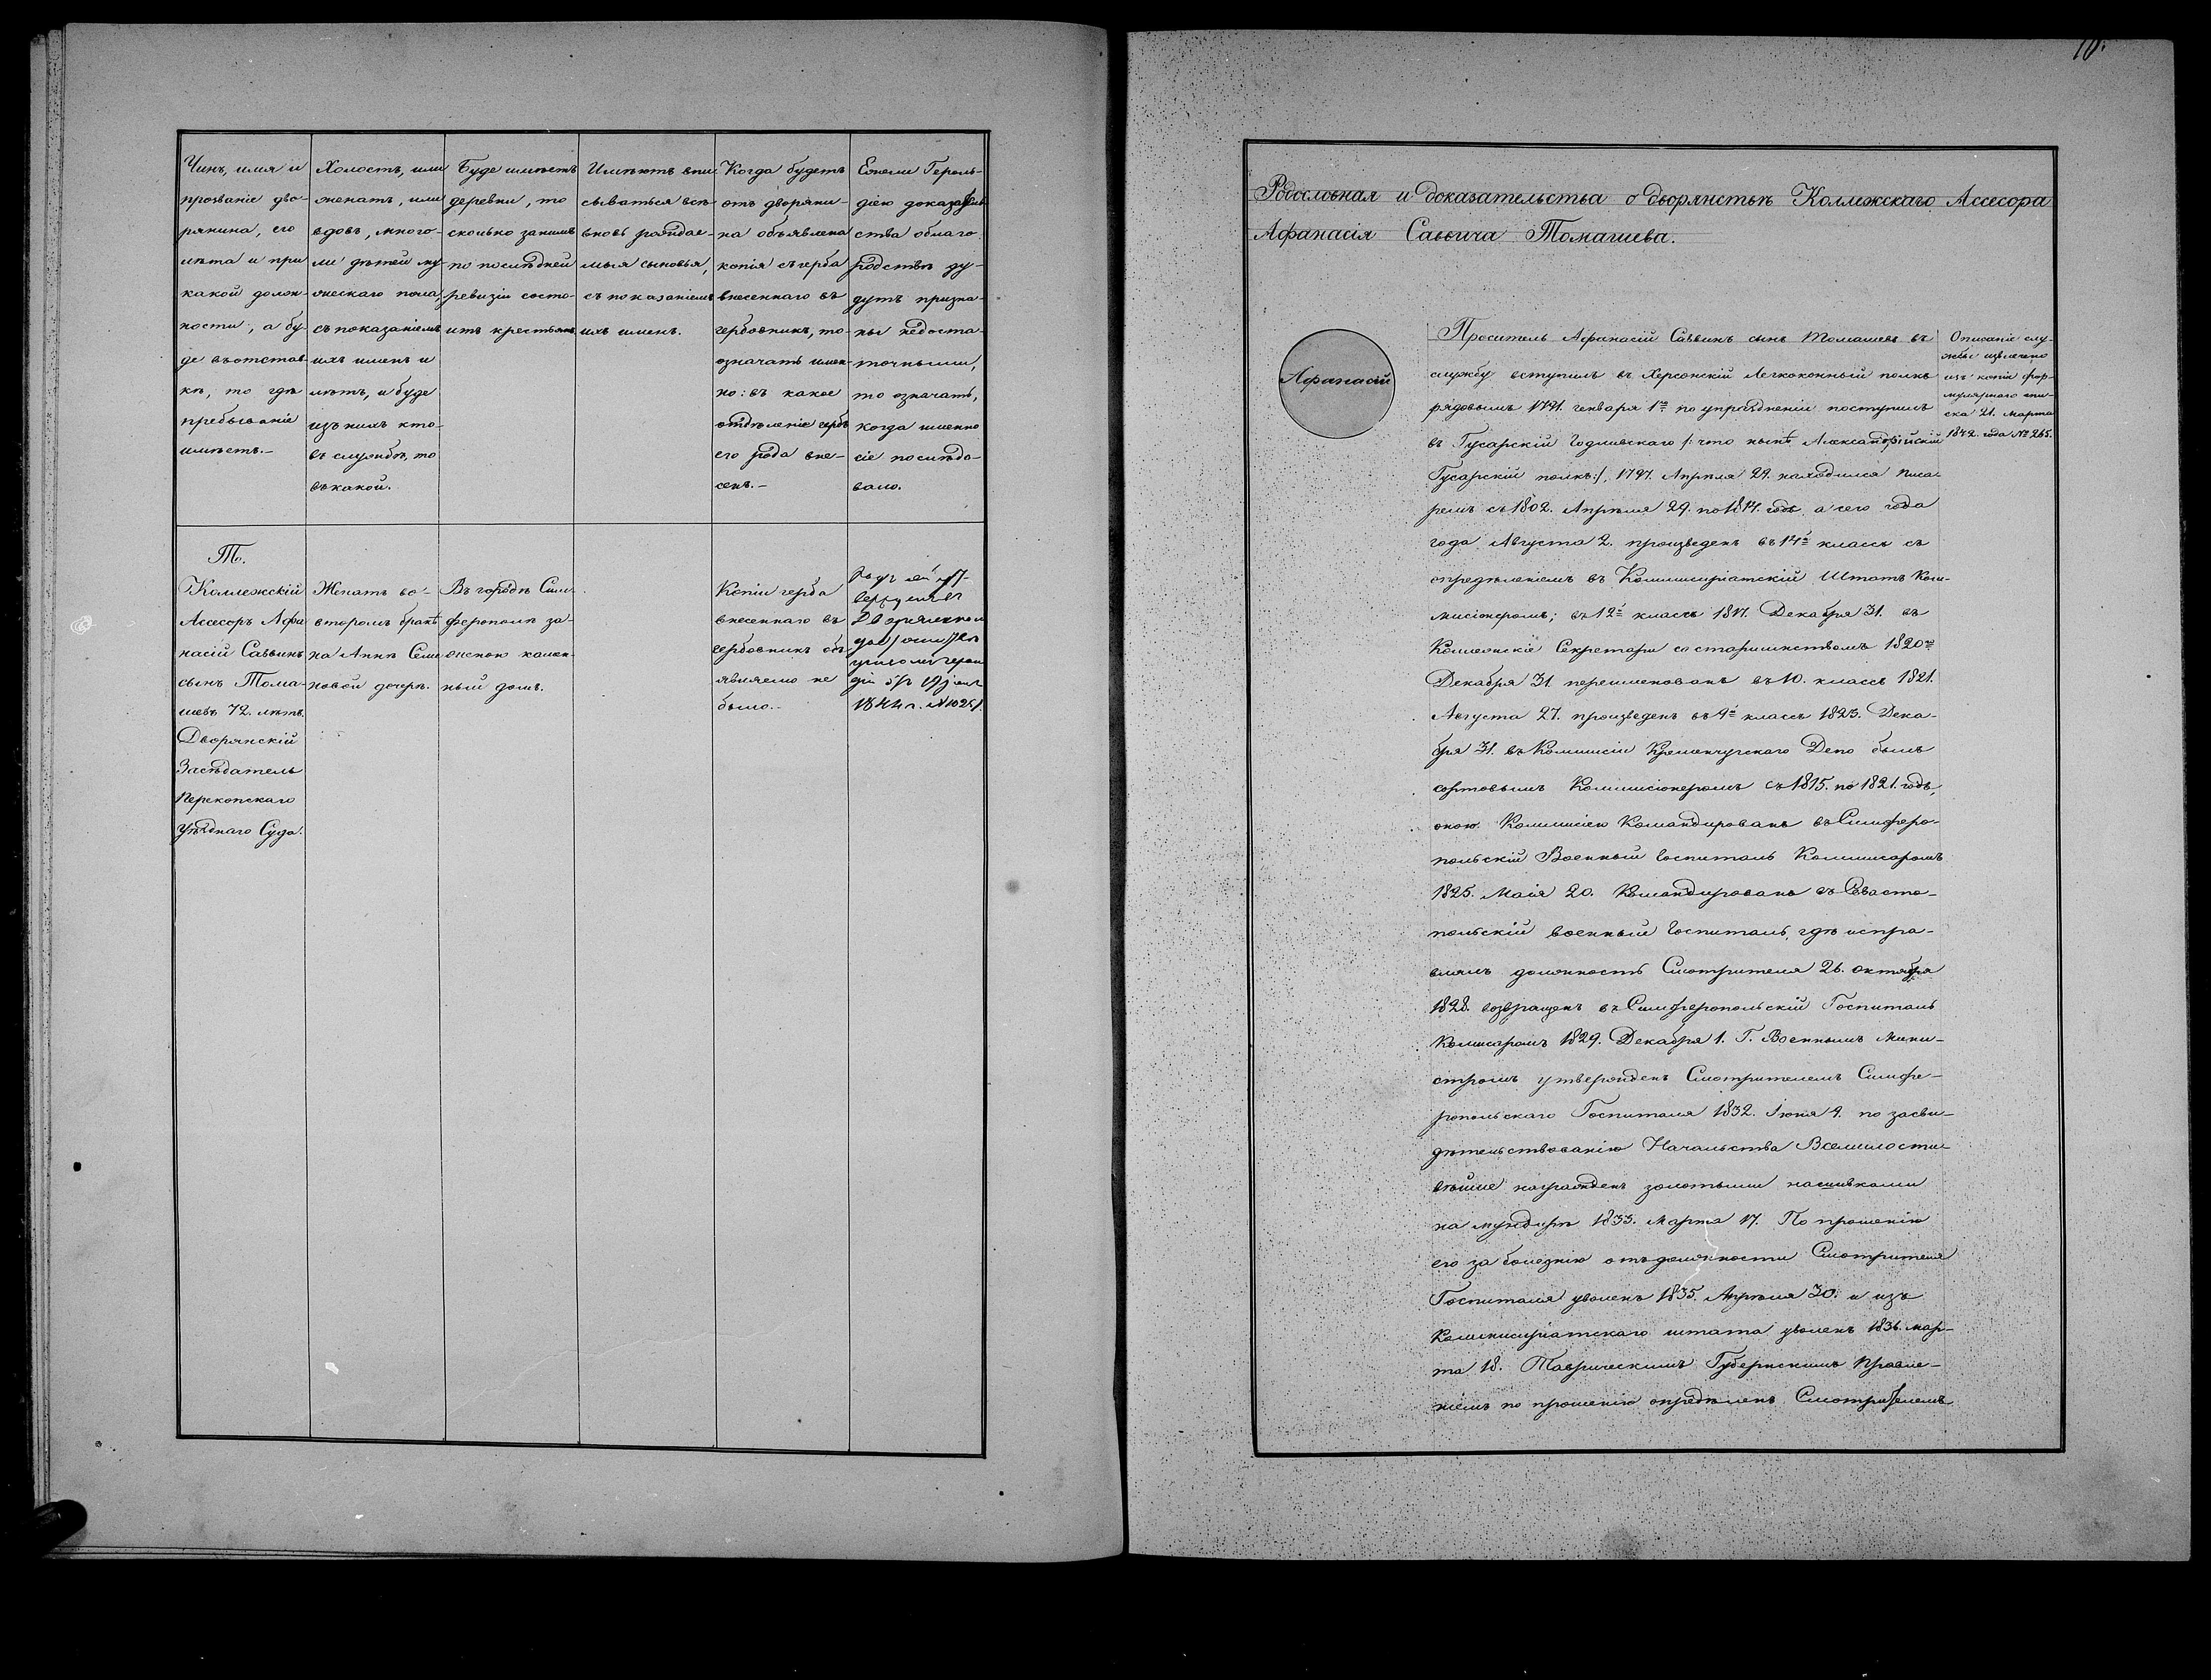 Чинъ, имя и
прозваніе дво-
рянина, его
лѣта и при
какой долж-
ности, а бу-
де въ отстав-
кѣ, то гдѣ
пребываніе
имѣетъ.-
Холостъ, или
женатъ, или
вдовъ, много-
ли дѣтей му-
жескаго пола,
съ показаніемъ
ихъ именъ и
лѣтъ, и буде
изъ нихъ кто-
въ службѣ, то
въ какой.
Буде имѣетъ
деревни, то
сколько за нимъ
по послѣдней
ревизіи состо-
итъ крестьянъ
Имѣютъ впи
сываться всѣ
вновь рождае-
мыя сыновья,
съ показаніемъ
ихъ именъ.
Когда будетъ
отъ дворяни-
на объявлена
копія съ герба
внесеннаго въ
гербовникъ, то-
означать имен-
но: въ какое
отдѣленіе гербъ
его рода вне-
сенъ.-
Ежели Героль-
діею доказатель
ства благо
родства бу-
дутъ призна-
ны недоста-
точными,
то означать,
когда именно
сіе послѣдо-
вало.
Т.
Коллежскій
Ассесоръ Афа
насій Саввинъ
сынъ Тома-
шевъ 72. лѣтъ.
Дворянскій
Засѣдатель
Перекопскаго
Уѣзднаго Суда.
Женатъ во-
второмъ бракѣ
на Аннѣ Семе
новой дочерѣ.
Въ городѣ Сим-
ферополѣ за-
женою камен-
ный домъ.
Копіи герба
внесеннаго въ
гербовникъ объ
являемо не
было.-
1844 г. №
10.
Родословная и доказательства о дворянствѣ Коллежскаго Ассесора
Афанасія Саввича Томашева.
Афанасій
Проситель Афанасій Саввинъ сынъ Томашевъ въ
службу вступилъ въ Херсонскій Легкоконный полкъ
рядовымъ 1791. генваря 1го по упраздненіи поступилъ
въ Гусарскій Годлевскаго /: что нынѣ Александрійскій
Гусарскій полкъ:/, 1797. Апрѣля 29. находился писа-
ремъ съ 1802. Апрѣля 29. по 1814. годъ, а сего года
года Августа 2. произведенъ въ 14й классъ съ
опредѣленіемъ въ Коммисаріатскій Штатъ Ком-
мисіонеромъ; въ 12й классъ 1817. Декабря 31. въ
Коллежскіе Секретари со старшинствомъ 1820го
Декабря 31. переименованъ въ 10. классъ 1821.
Августа 27. произведенъ въ 9й классъ 1823. Дека-
бря 31. въ Коммисіи Кременчугскаго Депо былъ
сортовымъ Коммисіонеромъ съ 1815. по 1821. годъ,
оною Коммисіею Командированъ въ Симферо-
польскій Военный Госпиталь Коммисаромъ
1825. Маія 20. Командированъ въ Севасто-
польскій военный Госпиталь, гдѣ испра-
влялъ должность Смотрителя 26. октября
1828. возвращенъ въ Симферопольскій Госпиталь
Комисаромъ 1829. Декабря 1. Г. Военнымъ Мини-
стромъ утвержденъ Смотрителемъ Симфе-
ропольскаго Госпиталя 1832. Іюня 4. по засви-
дѣтельствованію Начальства Всемилости
вѣйше награжденъ золотыми нашивками
на мундирѣ 1833. Марта 17. По прошенію
его за болезнію отъ должности Смотрителя
Госпиталя уволенъ 1835. Апрѣля 30. и изъ
Коммисаріатскаго штата уволенъ 1836. мар-
та 18. Таврическимъ Губернскимъ Правле-
ніемъ по прошенію опредѣленъ Смотрителемъ
Описаніе слу-
жбы извлечено
изъ копіи фор-
мулярнаго спи-
ска 21. Марта
1842. года № 265.